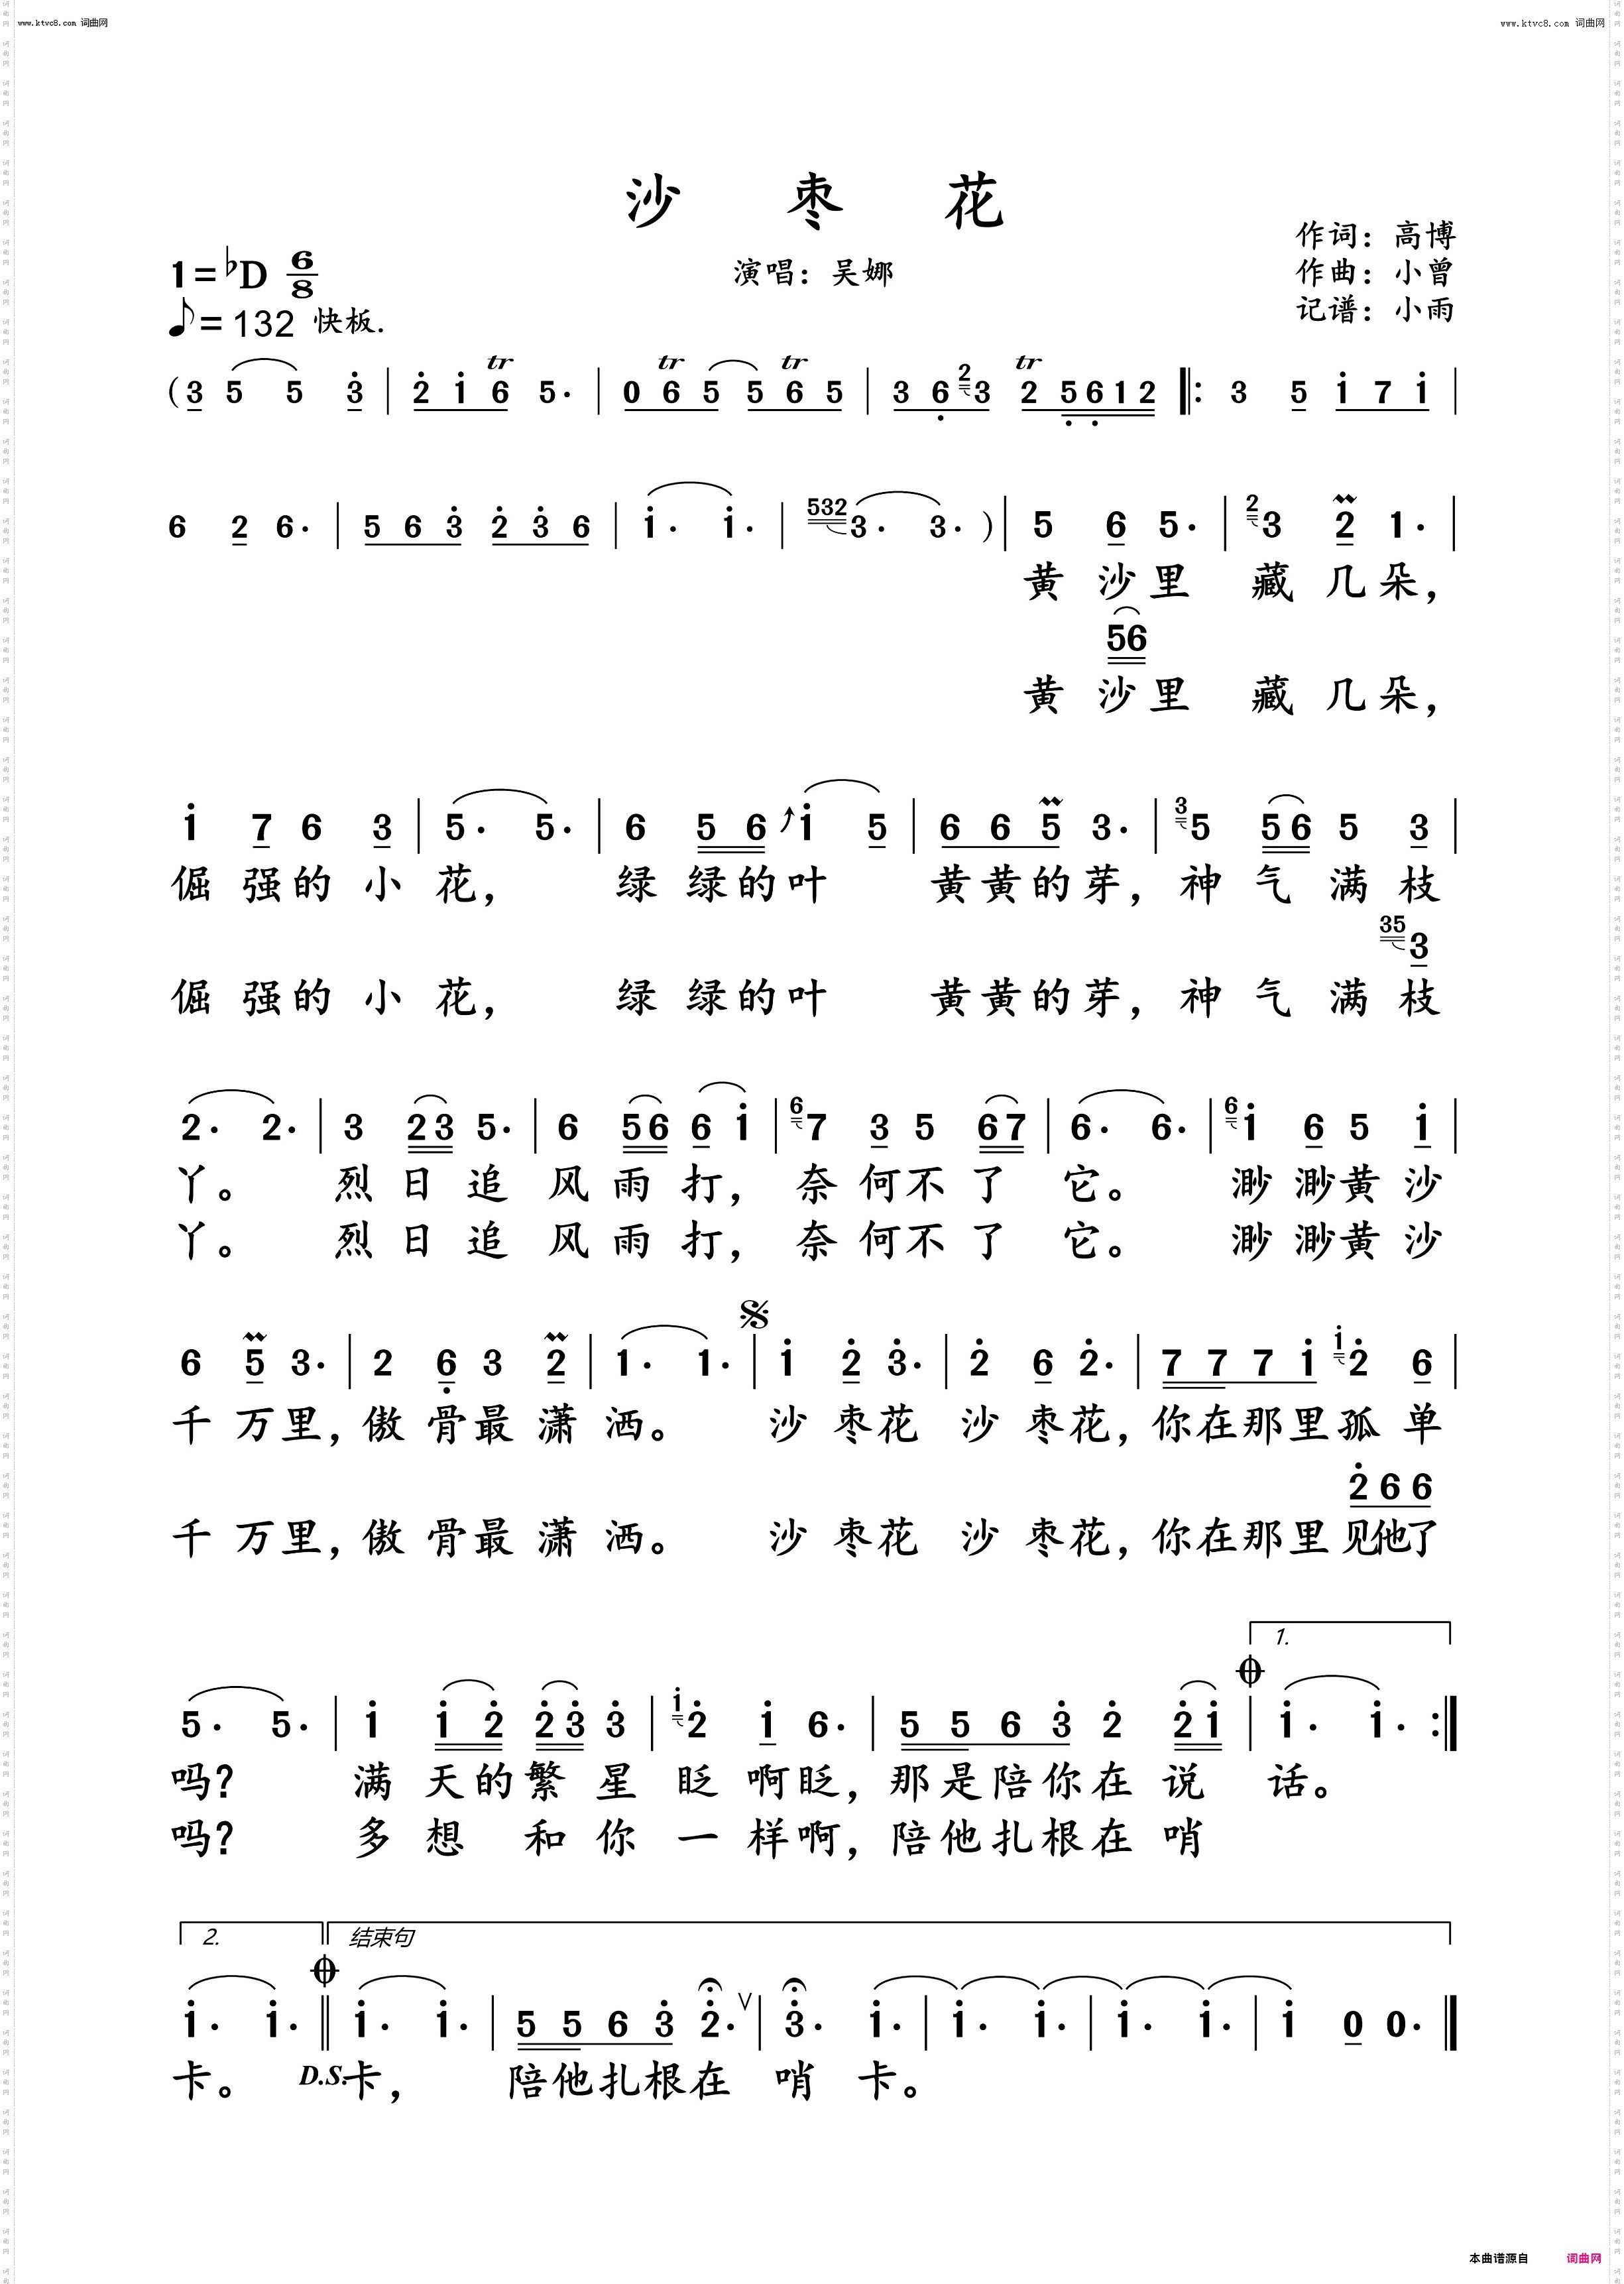 www.ktvc8.com 词曲网 www.ktvc8.com 词曲网
沙 枣 花
作词：高博
1=♭D 6/8 演唱：吴娜 作曲：小曾
♪=132 快板. 记谱：小雨
(3 5 5 3 | 2 1 6 5. | 0 6 5 5 6 5 | 3 6 2 3 2 5 6 1 2 |: 3 5 1 7 1 |
tr tr tr tr
6 2 6. | 5 6 3 2 3 6 | 1. 1. | 532 3. 3. ) | 5 6 5. | 2 3 2 1. |
黄 沙 里 藏 几 朵，
56
黄 沙 里 藏 几 朵，
1 7 6 3 | 5. 5. | 6 5 6 1 5 | 6 6 5 3. | 3 5 5 6 5 3 |
倔 强 的 小 花， 绿 绿 的 叶 黄 黄 的 芽，神 气 满 枝
35 3
倔 强 的 小 花， 绿 绿 的 叶 黄 黄 的 芽，神 气 满 枝
2. 2. | 3 2 3 5. | 6 5 6 6 1 | 6 7 3 5 6 7 | 6. 6. | 6 1 6 5 1 |
丫。 烈 日 追 风 雨 打， 奈 何 不 了 它。 渺 渺 黄 沙
丫。 烈 日 追 风 雨 打， 奈 何 不 了 它。 渺 渺 黄 沙
6 5 3. | 2 6 3 2 | 1. 1. | 1 2 3. | 2 6 2. | 7 7 7 1 1 2 6 |
千 万 里，傲 骨 最 潇 洒。 沙 枣 花 沙 枣 花，你 在 那 里 孤 单
2 6 6
千 万 里，傲 骨 最 潇 洒。 沙 枣 花 沙 枣 花，你 在 那 里 见他了
1.
5. 5. | 1 1 2 2 3 3 | 1 2 1 6. | 5 5 6 3 2 2 1 | 1. 1. :|
吗？ 满 天 的 繁 星 眨 啊 眨，那 是 陪 你 在 说 话。
吗？ 多 想 和 你 一 样 啊，陪 他 扎 根 在 哨
2. 结束句
1. 1. || 1. 1. | 5 5 6 3 2. V | 3. 1. | 1. 1. | 1. 1. | 1 0 0. ||
卡。 D.S. 卡， 陪 他 扎 根 在 哨 卡。
本曲谱源自 词曲网